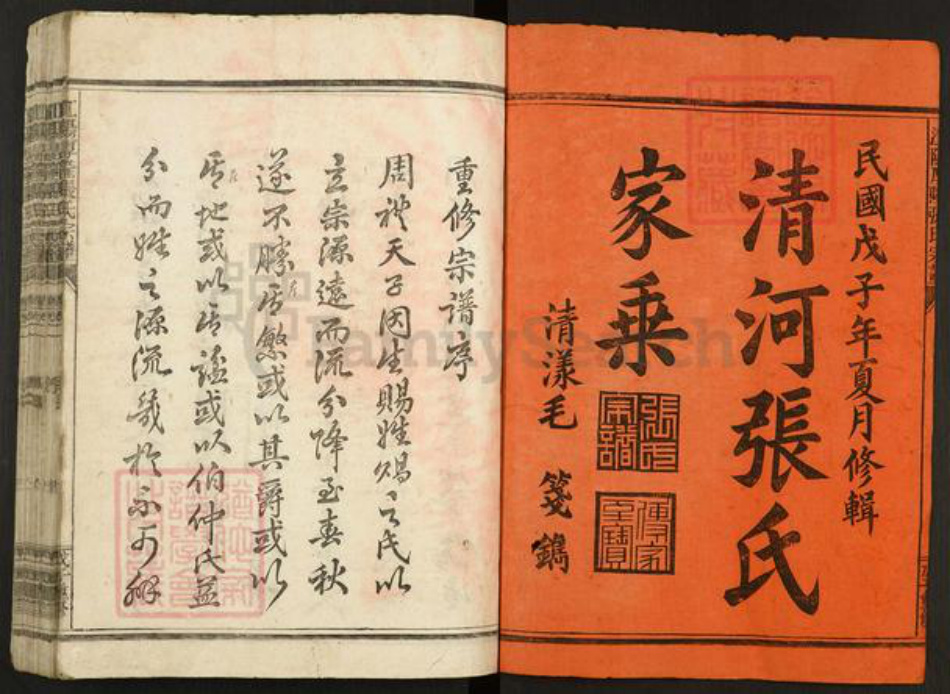 民國戊子年夏月修輯
清河張氏
家乘
清漾毛 箋鐫
張氏宗譜
傳家至寶
重修宗譜序
周禮天子因生賜姓賜之氏以
立宗源遠而流分降至春秋
遂不勝其繁或以其爵或以
其地或以其諡或以伯仲氏益
分而姓之源流幾於不可解
FamilySearch